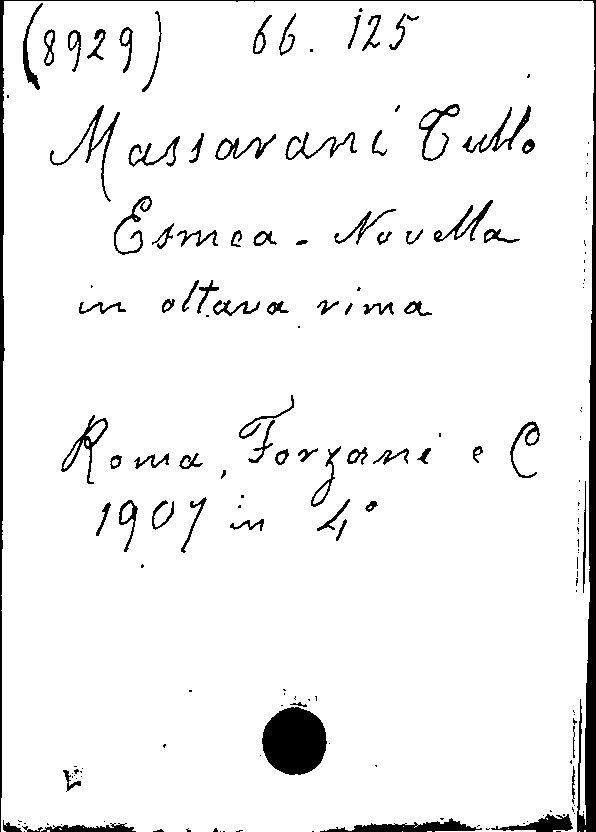 (8929) 66. 125
Massarani Tullo
Esmea - Novella
in ottava rima
Roma, Forzani e C
1907 in 4°